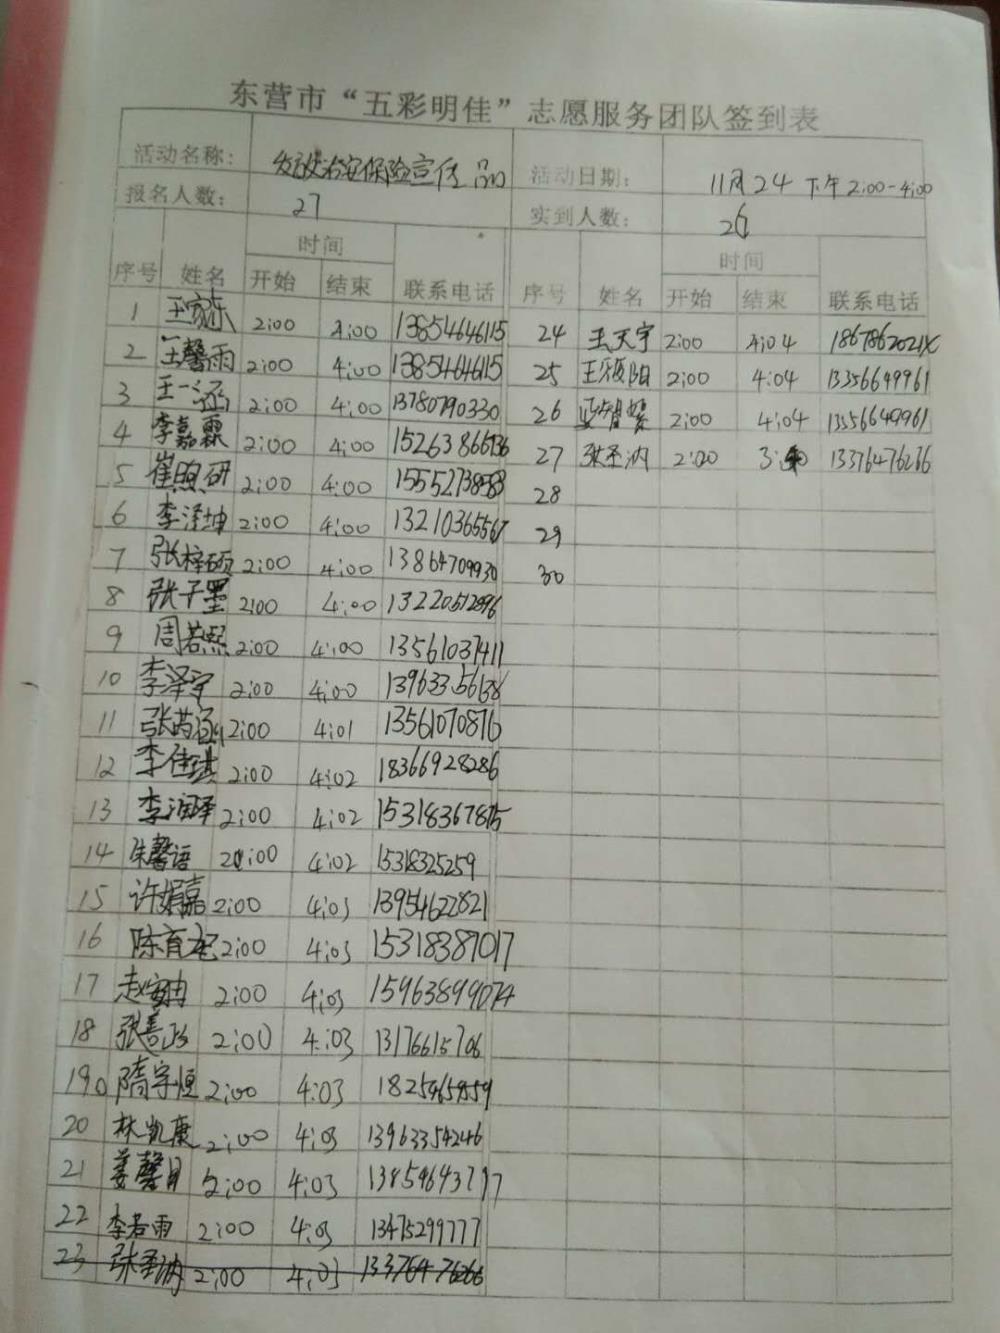 东营市“五彩明佳”志愿服务团队签到表
活动名称： 发放治安保险宣传品 活动日期： 11月24 下午2:00-4:00
报名人数： 27 实到人数： 26
序号 姓名 时间 联系电话 序号 姓名 时间 联系电话
开始 结束 开始 结束
1 2:00 4:00 13854646115 24 王天宇 2:00 4:04
2 王馨雨 2:00 4:00 13854646115 25 2:00 4:04 13356649961
3 王一涵 2:00 4:00 13780790330 26 2:00 4:04 13356649961
4 李嘉霖 2:00 4:00 15263866736 27 张圣汭 2:00 13376476266
5 崔煦研 2:00 4:00 15552738583 28
6 李泽坤 2:00 4:00 13210365567 29
7 张梓硕 2:00 4:00 13864709930 30
8 张子墨 2:00 4:00 13220512896
9 周若熙 2:00 4:00 13561037411
10 李泽宇 2:00 4:00 13963356638
11 2:00 4:01 13561070876
12 李佳琪 2:00 4:02 18366928286
13 李润泽 2:00 4:02 15318367875
14 朱馨语 2:00 4:02 15318325259
15 2:00 4:03 13954622821
16 2:00 4:03 15318387017
17 2:00 4:03 15963899074
18 2:00 4:03 13176615706
19 隋宇恒 2:00 4:03
20 林凯康 2:00 4:03 13963354246
21 姜馨月 2:00 4:03
22 李若雨 2:00 4:03 13475299777
23 张圣汭 2:00 4:03 13376476266